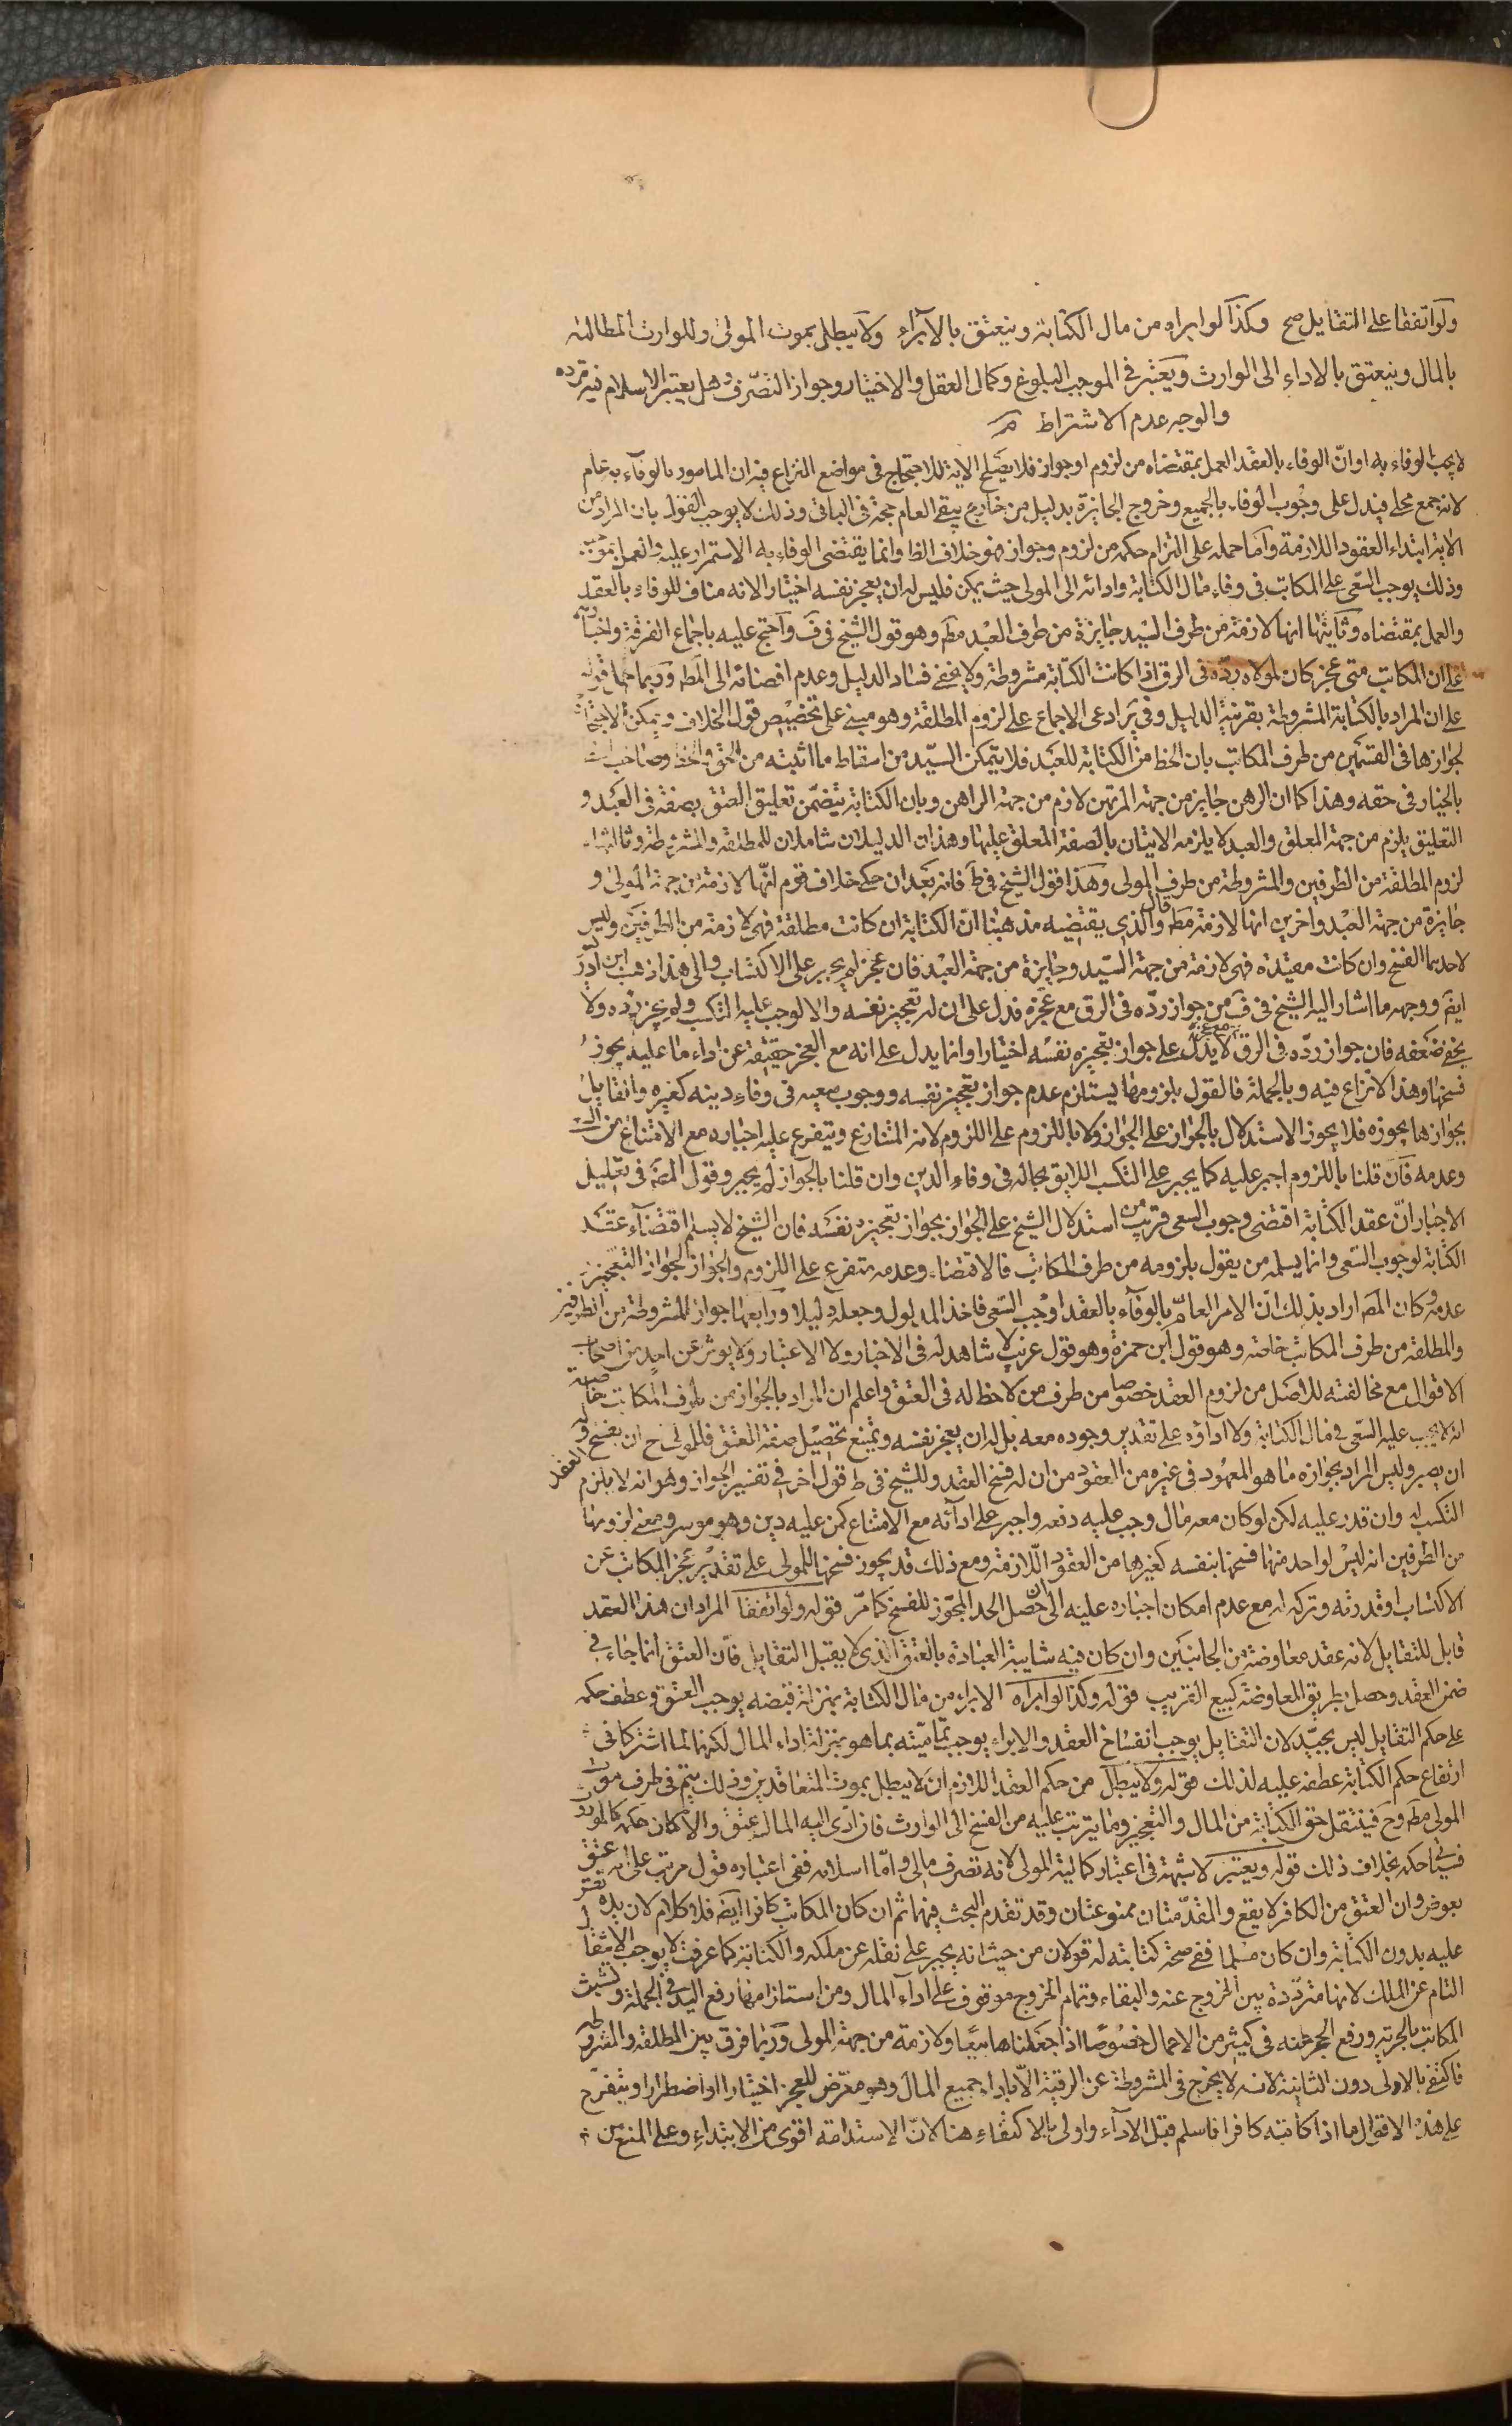 ولو اتفقا على التقايل صح وكذا لو ابراه من مال الكتابة وينعتق بالابراء ولا يبطل بموت المولى وللوارث المطالبة
بالمال وينعتق بالاداء الى الوارث ويعتبر في الموجب البلوغ وكمال العقل والاختيار وجواز التصرف وهل يعتبر الاسلام فيه تردد
والوجه عدم الاشتراط
لا يجب الوفاء به او ان الوفاء بالعقد العمل بمقتضاه من لزوم او جواز فلا يصلح الاية للاحتجاج في مواضع النزاع فيه ان المامور بالوفاء به عام
لانه جمع محلى فيدل على وجوب الوفاء بالجميع وخروج الجايزة بدليل من خارج يبقى العام حجة في الباقي وذلك لا يوجب القول بان المراد من
الاية ابتداء العقود اللازمة واما حمله على التزام حكمه من لزوم وجواز فهو خلاف الظ وانما يقتضى الوفاء به الاستمرار عليه والعمل بموجبه
وذلك يوجب السعى على المكاتب في وفاء مال الكتابة وادائه الى المولى حيث يمكن فليس له ان يعجز نفسه اختيارا لانه مناف للوفاء بالعقد
والعمل بمقتضاه وثانيها انها لازمة من طرف السيد جايزة من طرف العبد مط وهو قول الشيخ في ف واحتج عليه باجماع الفرقة واخبارهم
على ان المكاتب متى عجز كان لمولاه رده في الرق اذا كانت الكتابة مشروطة ولا يخفى فساد الدليل وعدم افضائه الى المط وربما حمل قوله
على ان المراد بالكتابة المشروطة بقرينة الدليل وفي ير ادعى الاجماع على لزوم المطلقة وهو مبنى على تخصيص قول الخلاف ويمكن الاحتجاج
لجوازها في القسمين من طرف المكاتب بان الحظ من الكتابة للعبد فلا يتمكن السيد من اسقاط ما اثبته من الحق والحظ وصاحب الحظ
بالخيار في حقه وهذا كما ان الرهن جايز من جهة المرتهن لازم من جهة الراهن وبان الكتابة يتضمن تعليق العتق بصفة في العبد و
التعليق يلزم من جهة المعلق والعبد لا يلزمه الاتيان بالصفة المعلق عليها وهذان الدليلان شاملان للمطلقة والمشروطة وثالثها
لزوم المطلقة من الطرفين والمشروطة من طرف المولى وهذا قول الشيخ في ط فانه بعد ان حكى خلاف قوم انها لازمة من جهة المولى و
جايزة من جهة العبد واخرين انها لازمة مط قال والذي يقتضيه مذهبنا ان الكتابة ان كانت مطلقة فهي لازمة من الطرفين وليس
لاحدهما الفسخ وان كانت مقيدة فهي لازمة من جهة السيد وجايزة من جهة العبد فان عجز لم يجبر على الاكتساب والى هذا ذهب ابن ادريس
ايض ووجهه ما اشار اليه الشيخ في ف من جواز رده في الرق مع عجزه فدل على ان له تعجيز نفسه والا لوجب عليه التكسب ولم يجز رده ولا
يخفى ضعفه فان جواز رده في الرق مع عجزه لا يدل على جواز تعجيزه نفسه اختيارا وانما يدل على انه مع العجز حقيقة عن اداء ما عليه يجوز
فسخها وهذا لا نزاع فيه وبالجملة فالقول بلزومها يستلزم عدم جواز تعجيز نفسه ووجوب سعيه في وفاء دينه كغيره والقايل
بجوازها يجوزه فلا يجوز الاستدلال بالجواز على الجواز ولا باللزوم على اللزوم لانه المتنازع ويتفرع عليه اجباره مع الامتناع من السعى
وعدمه فان قلنا باللزوم اجبر عليه كما يجبر على التكسب اللايق بحاله في وفاء الدين وان قلنا بالجواز لم يجبر وقول المص في تعليل
الاجبار ان عقد الكتابة اقتضى وجوب السعى قريب من استدلال الشيخ على الجواز بجواز تعجيزه نفسه فان الشيخ لا يسلم اقتضاء عقد
الكتابة لوجوب السعى وانما يسلمه من يقول بلزومه من طرف المكاتب فالاقتضاء وعدمه متفرع على اللزوم والجواز لجواز التعجيز
عدمه وكان المص اراد بذلك ان الامر العام بالوفاء بالعقد اوجب السعى فاخذ المدلول وجعله دليلا ورابعها جواز المشروطة من الطرفين
والمطلقة من طرف المكاتب خاصة وهو قول ابن حمزة وهو قول غريب لا شاهد له في الاخبار ولا الاعتبار ولا يوثر عن احد من اصحاب
الاقوال مع مخالفته للاصل من لزوم العقد خصوصا من طرف من لا حظ له في العتق واعلم ان المراد بالجواز من طرف المكاتب خاصة
انه لا يجب عليه السعى في مال الكتابة ولا اداؤه على تقدير وجوده معه بل له ان يعجز نفسه ويمتنع تحصيل صفة العتق فللمولى ح ان يفسخ العقد وله
ان يصبر وليس المراد بجوازه ما هو المعهود في غيره من العقود من ان له فسخ العقد وللشيخ في ط قول اخر في تفسير الجواز وهو انه لا يلزم
التكسب له وان قدر عليه لكن لو كان معه مال وجب عليه دفعه واجبر على ادائه مع الامتناع كمن عليه دين وهو موسر ومعنى لزومها
من الطرفين انه ليس لواحد منهما فسخها بنفسه كغيرها من العقود اللازمة ومع ذلك قد يجوز فسخها للمولى على تقدير عجز المكاتب عن
الاكتساب او قدرته وتركه له مع عدم امكان اجباره عليه الى ان حصل الحد المجوز للفسخ كما مر قوله ولو اتفقا المراد ان هذا العقد
قابل للتقايل لانه عقد معاوضة من الجانبين وان كان فيه شايبة العبادة بالعتق الذي لا يقبل التقايل فان العتق انما جاء في
ضمن العقد وحصل بطريق المعاوضة كبيع القريب قوله وكذا لو ابراه الابراء من مال الكتابة بمنزلة قبضه يوجب العتق وعطف حكمه
على حكم التقايل ليس بجيد لان التقايل يوجب انفساخ العقد والابراء يوجب تماميته بما هو بمنزلة اداء المال لكنهما لما اشتركا في
ارتفاع حكم الكتابة عطفه عليه لذلك قوله ولا يبطل من حكم العقد اللازم ان لا يبطل بموت المتعاقدين وذلك يتم في طرف موت
المولى مط وح فينتقل حق الكتابة من المال والتعجيز وما يترتب عليه من الفسخ الى الوارث فان ادى اليه المال عتق والا كان حكمه كالموروث
فسياتي حكمه بخلاف ذلك قوله ويعتبر لا شبهة في اعتبار كمالية المولى لانه تصرف مالي واما اسلامه ففي اعتباره قول مرتب على انه عتق
بعوض وان العتق من الكافر لا يقع والمقدمتان ممنوعتان وقد تقدم البحث فيهما ثم ان كان المكاتب كافرا ايض فلا كلام لان يده تقر
عليه بدون الكتابة وان كان مسلما ففي صحة كتابته له قولان من حيث انه يجبر على نقله عن ملكه والكتابة كما عرفت لا يوجب الانتقال
التام عن الملك لانها مترددة بين الخروج عنه والبقاء وتمام الخروج موقوف على اداء المال ومن استلزامها رفع اليد في الجملة وتشبث
المكاتب بالحرية ورفع الحجر عنه في كثير من الاعمال خصوصا اذا جعلناها بيعا ولازمة من جهة المولى وربما فرق بين المطلقة والمشروطة
فاكتفى بالاولى دون الثانية لانه لا يخرج في المشروطة عن الرقية الا باداء جميع المال وهو معرض للعجز اختيارا او اضطرارا ويتفرع
على هذه الاقوال ما اذا كاتبه كافرا فاسلم قبل الاداء واولى بالاكتفاء هنا لان الاستدامة اقوى من الابتداء وعلى المنع من